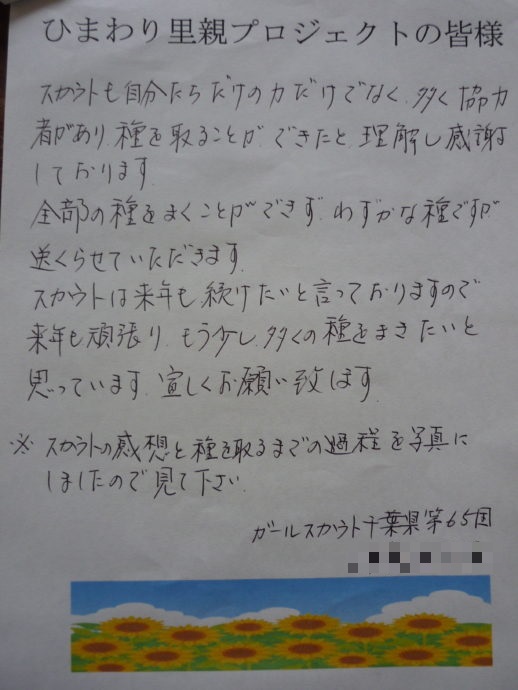 ひまわり里親プロジェクトの皆様
スカウトも自分たちだけの力だけでなく、多く協力
者があり、種を取ることができたと理解し感謝
しております。
全部の種をまくことができず、わずかな種ですが
送くらせていただきます。
スカウトは来年も続けたいと言っておりますので
来年も頑張り、もう少し多くの種をまきたいと
思っています。宜しくお願い致します。
※スカウトの感想と種を取るまでの過程を写真に
しましたので見て下さい。
ガールスカウト千葉県第65団